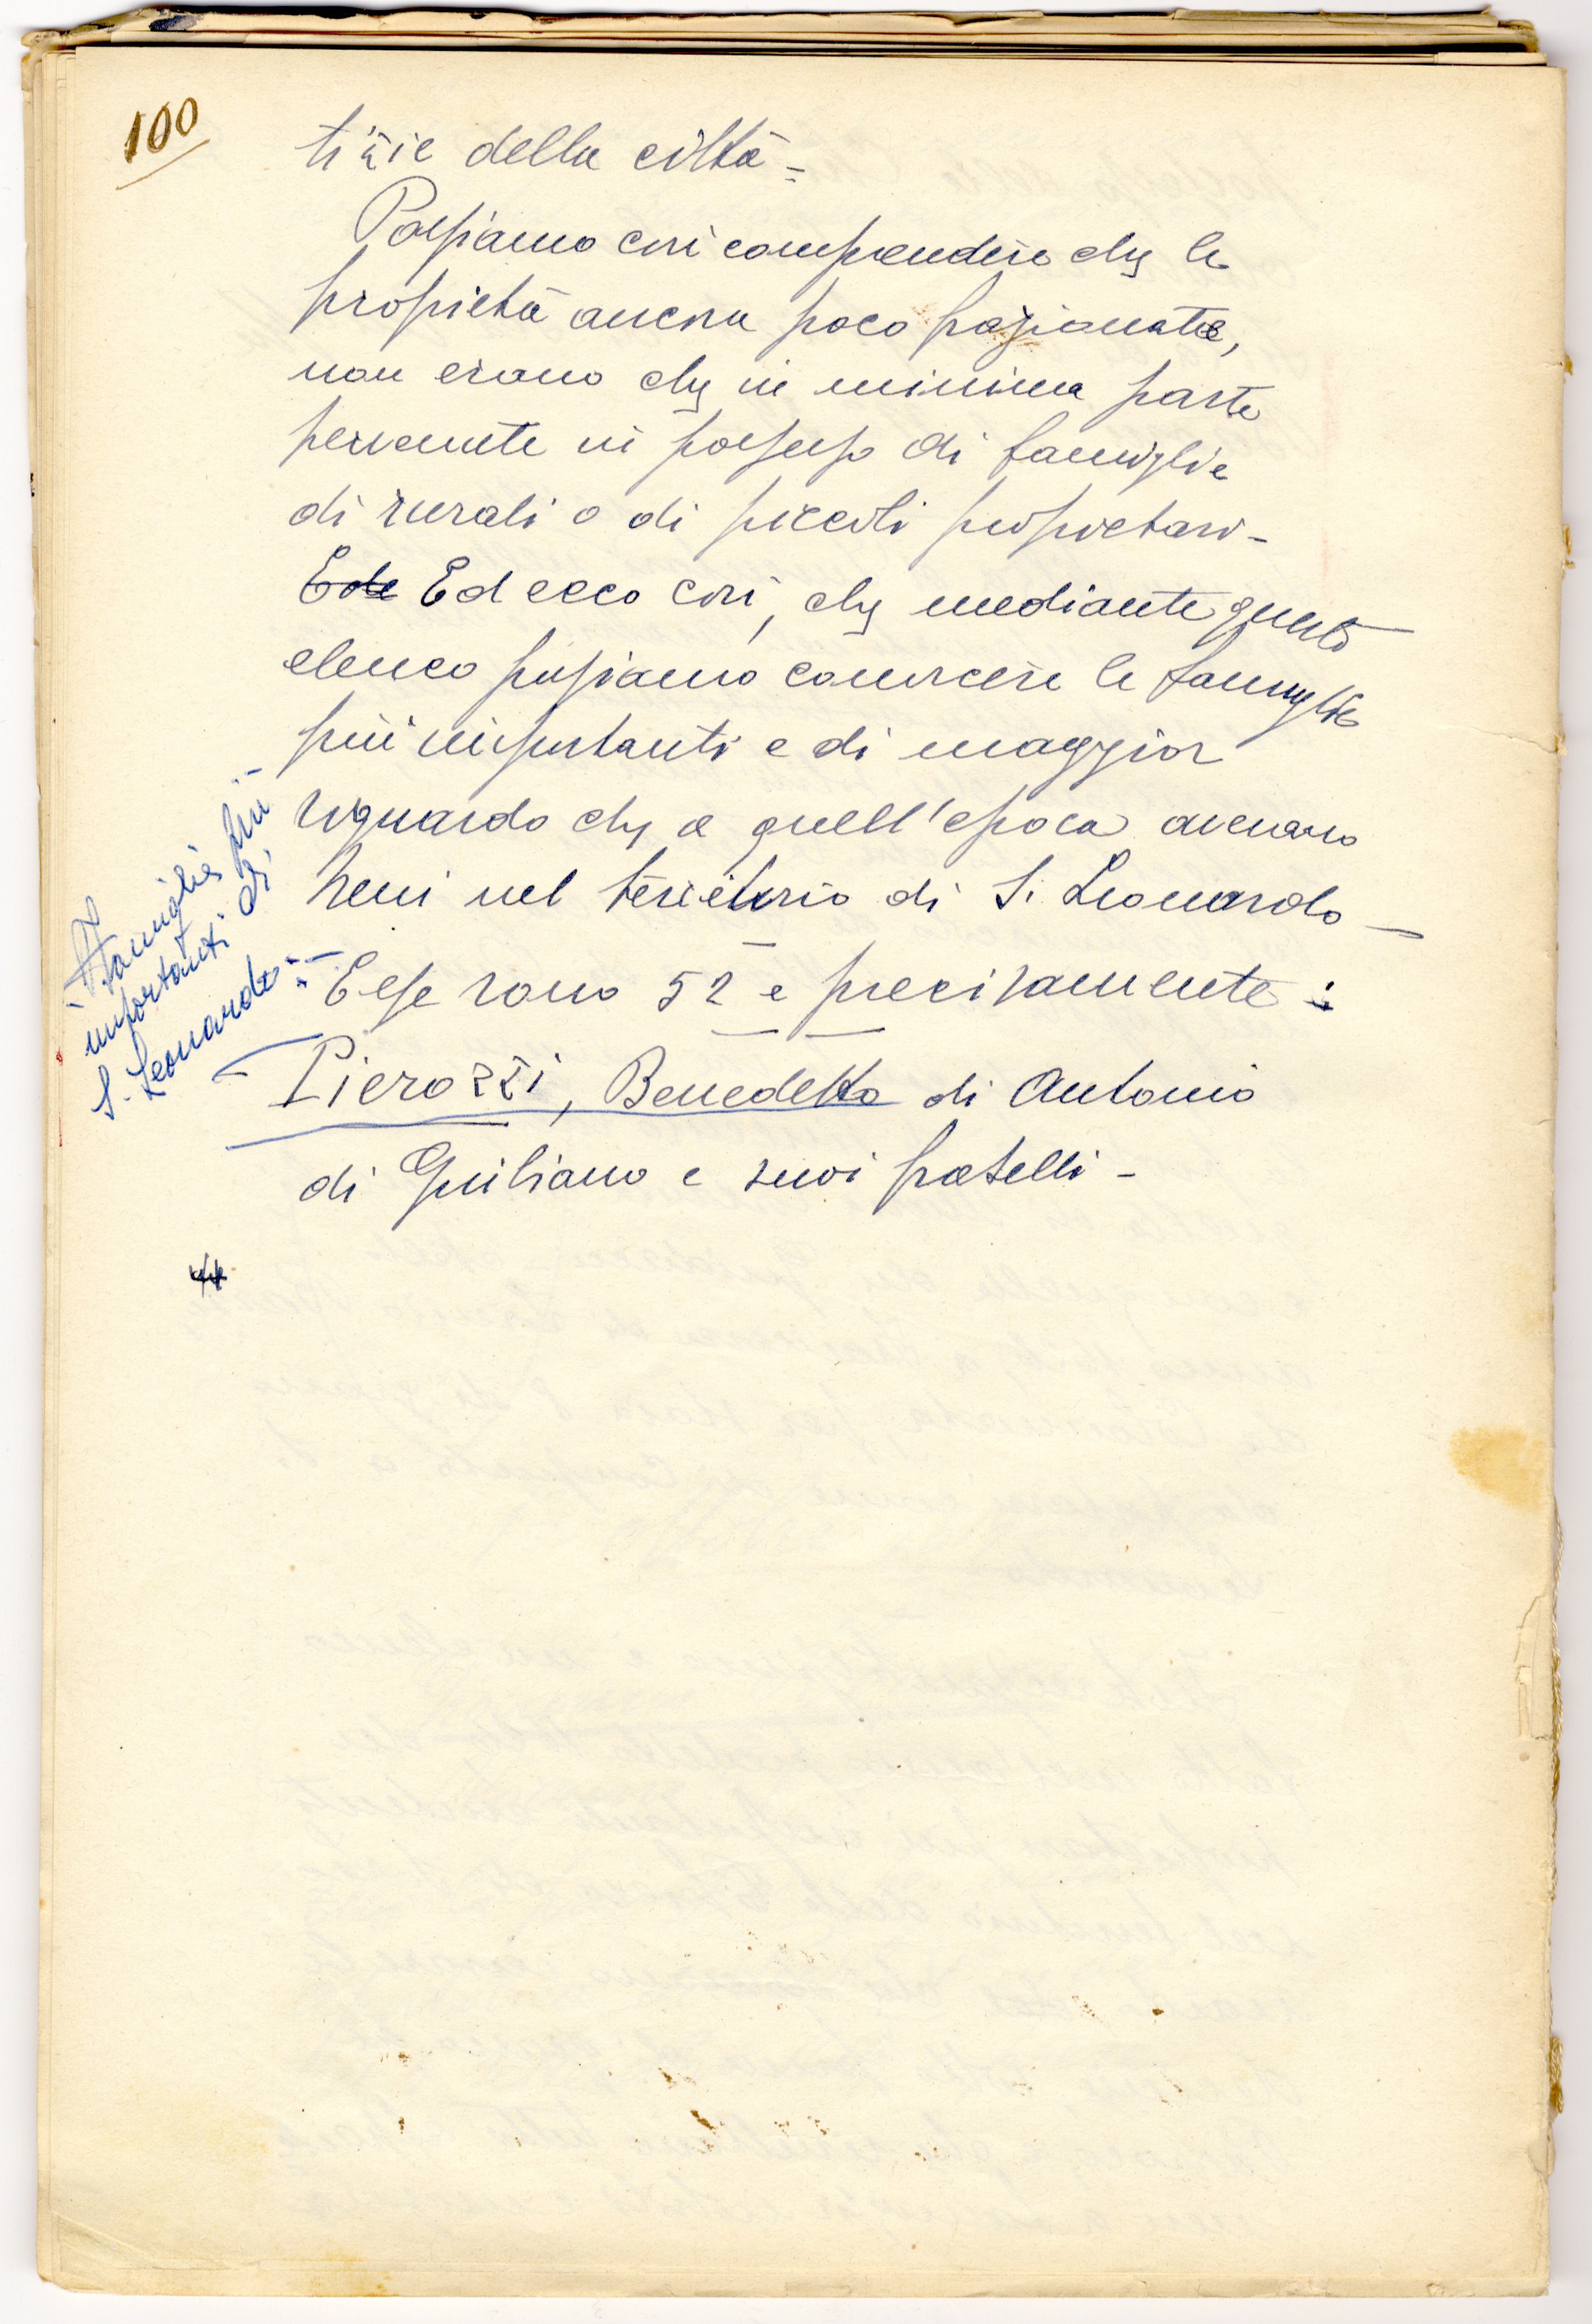 100
tizie della città =
Possiamo così comprendere che le
proprietà ancora poco frazionate,
non erano che in minima parte
pervenute in possesso di famiglie
di rurali o di piccoli proprietari -
Ede Ed ecco così, che mediante questo
elenco possiamo conoscere le famiglie
più importanti e di maggior
riguardo che a quell'epoca avevano
beni nel territorio di S. Leonardo -
- Famiglie più -
importanti di
S. Leonardo -
Esse sono 52 e precisamente :
Pierozzi, Benedetto di Antonio
di Giuliano e suoi fratelli -